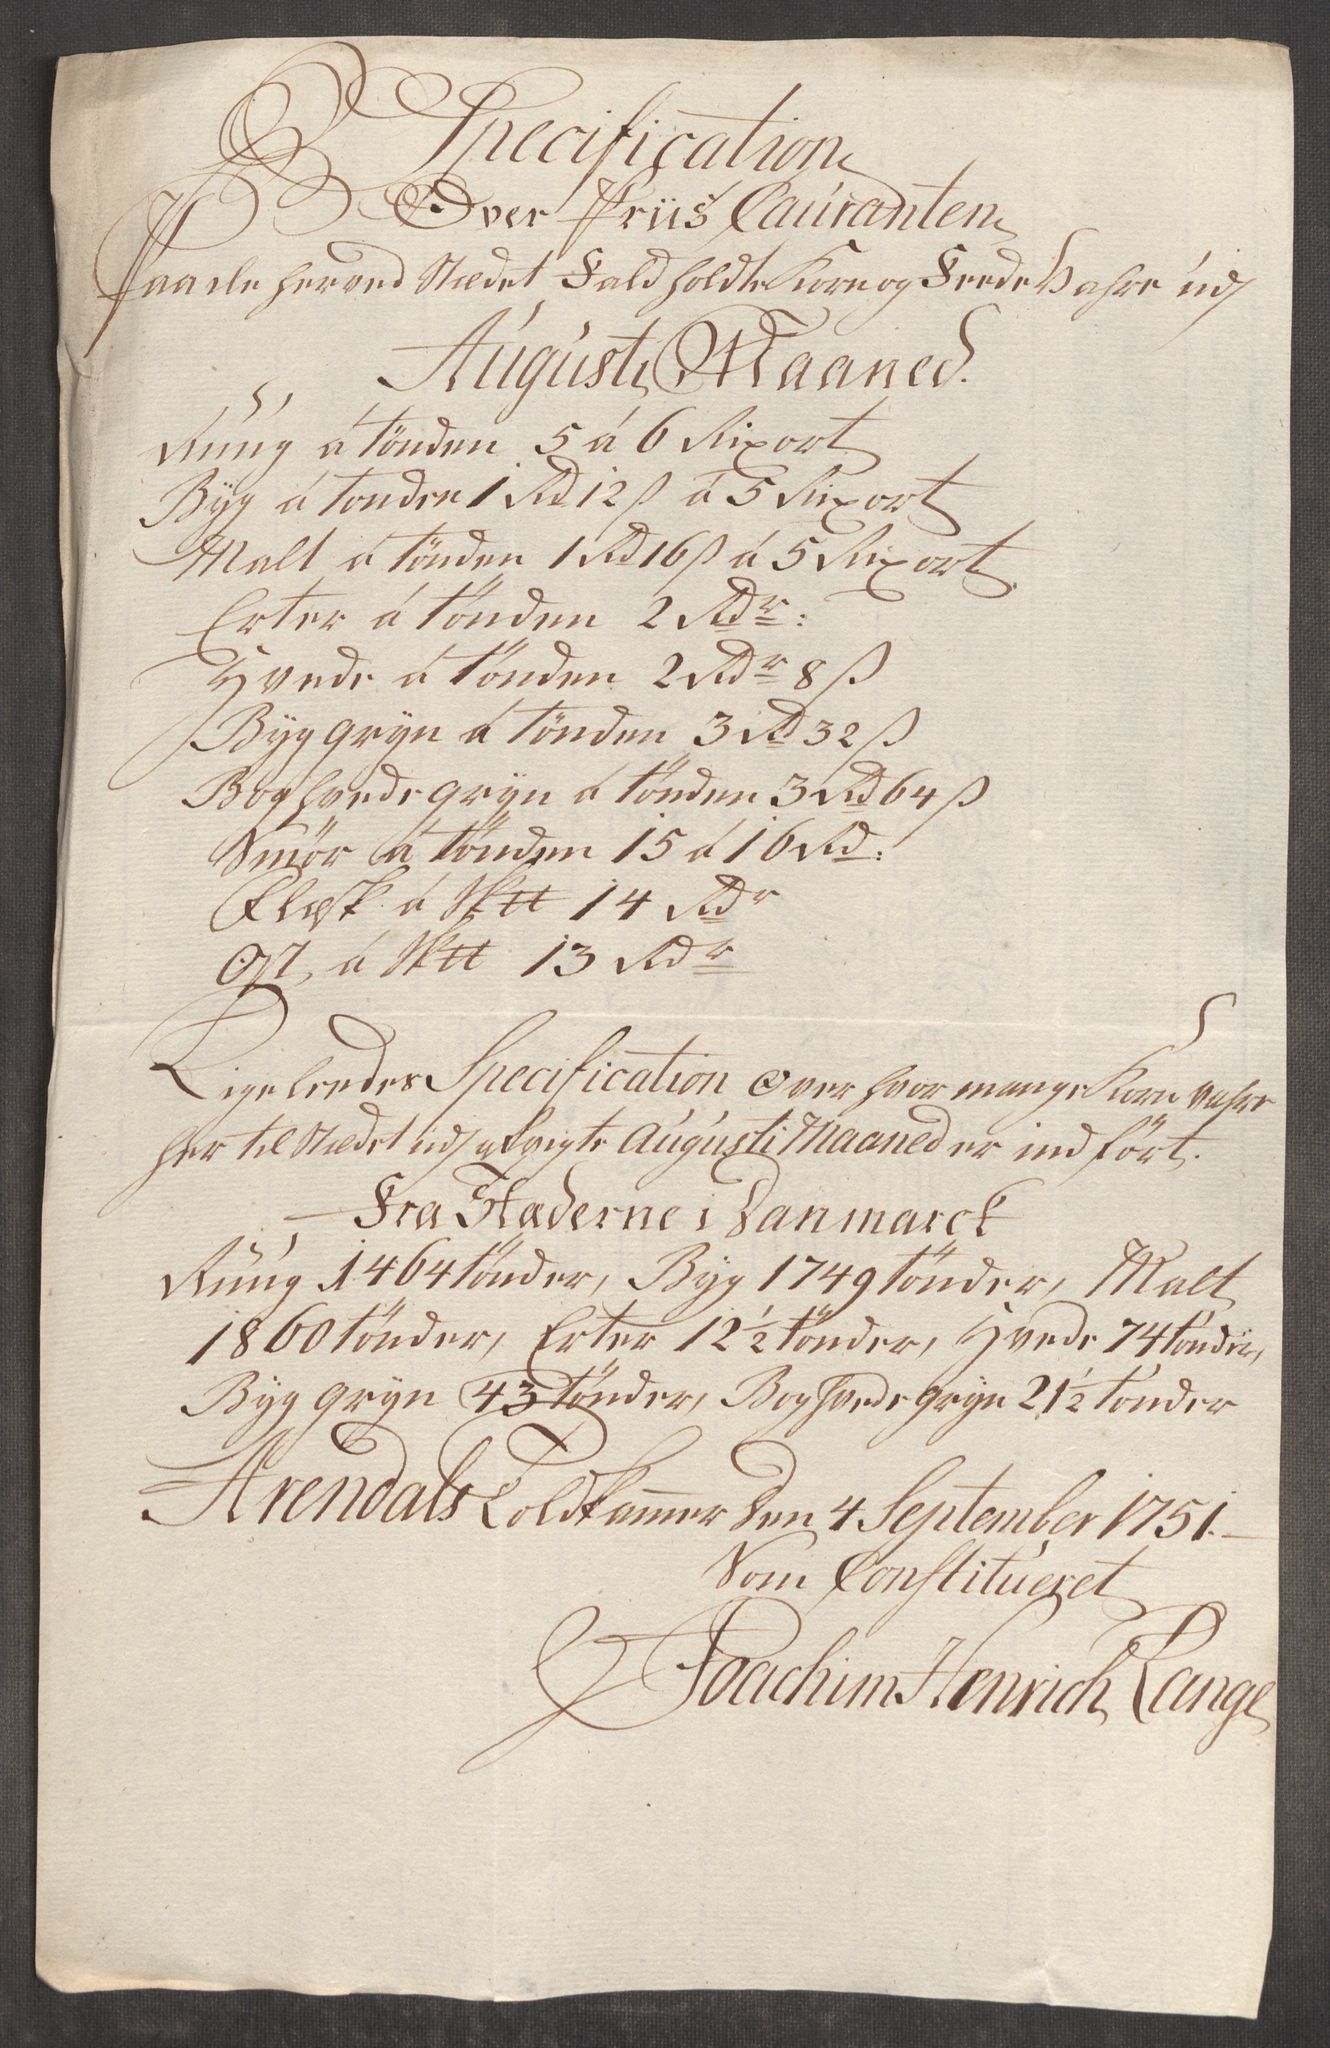 Specification
Over Priis Couranten
Paa de her ved Stædet Fald holdte Korn og Feede Vahre udj
Augusti Maaned.
Rúúg á tönden 5 á 6 Rixort
Byg á tonden 1 Rd 12 ß á 5 Rixort
Malt á tönden 1 Rd 16 ß á 5 Rixort
Erter á tönden 2 Rdr:
Hvede á tönden 2 Rdr 8 ß
Byg gryn á tönden 3 Rd 32 ß
Boghvede gryn á tönden 3 Rd 64 ß
Smör á tönden 15 á 16 Rd:
Flesk á Sk℔ 14 Rdr
Ost á Sk℔ 13 Rdr
Ligeleedes Specification over hvor mange Korn vahre
her til Stædet udj afvigte Augusti Maaned er ind fört.
Fra Stæderne i Danmarck
Rúúg 1464 tönder, Byg 1749 tönder, Malt
1860 tönder, Erter 12½ tönder, Hvede 74 tönder,
Byg gryn 43 tönder, Boghvede gryn 21½ tönder
Arendals Toldkammer den 4 September 1751.
Som Constitueret
Joachim Henrich Lange